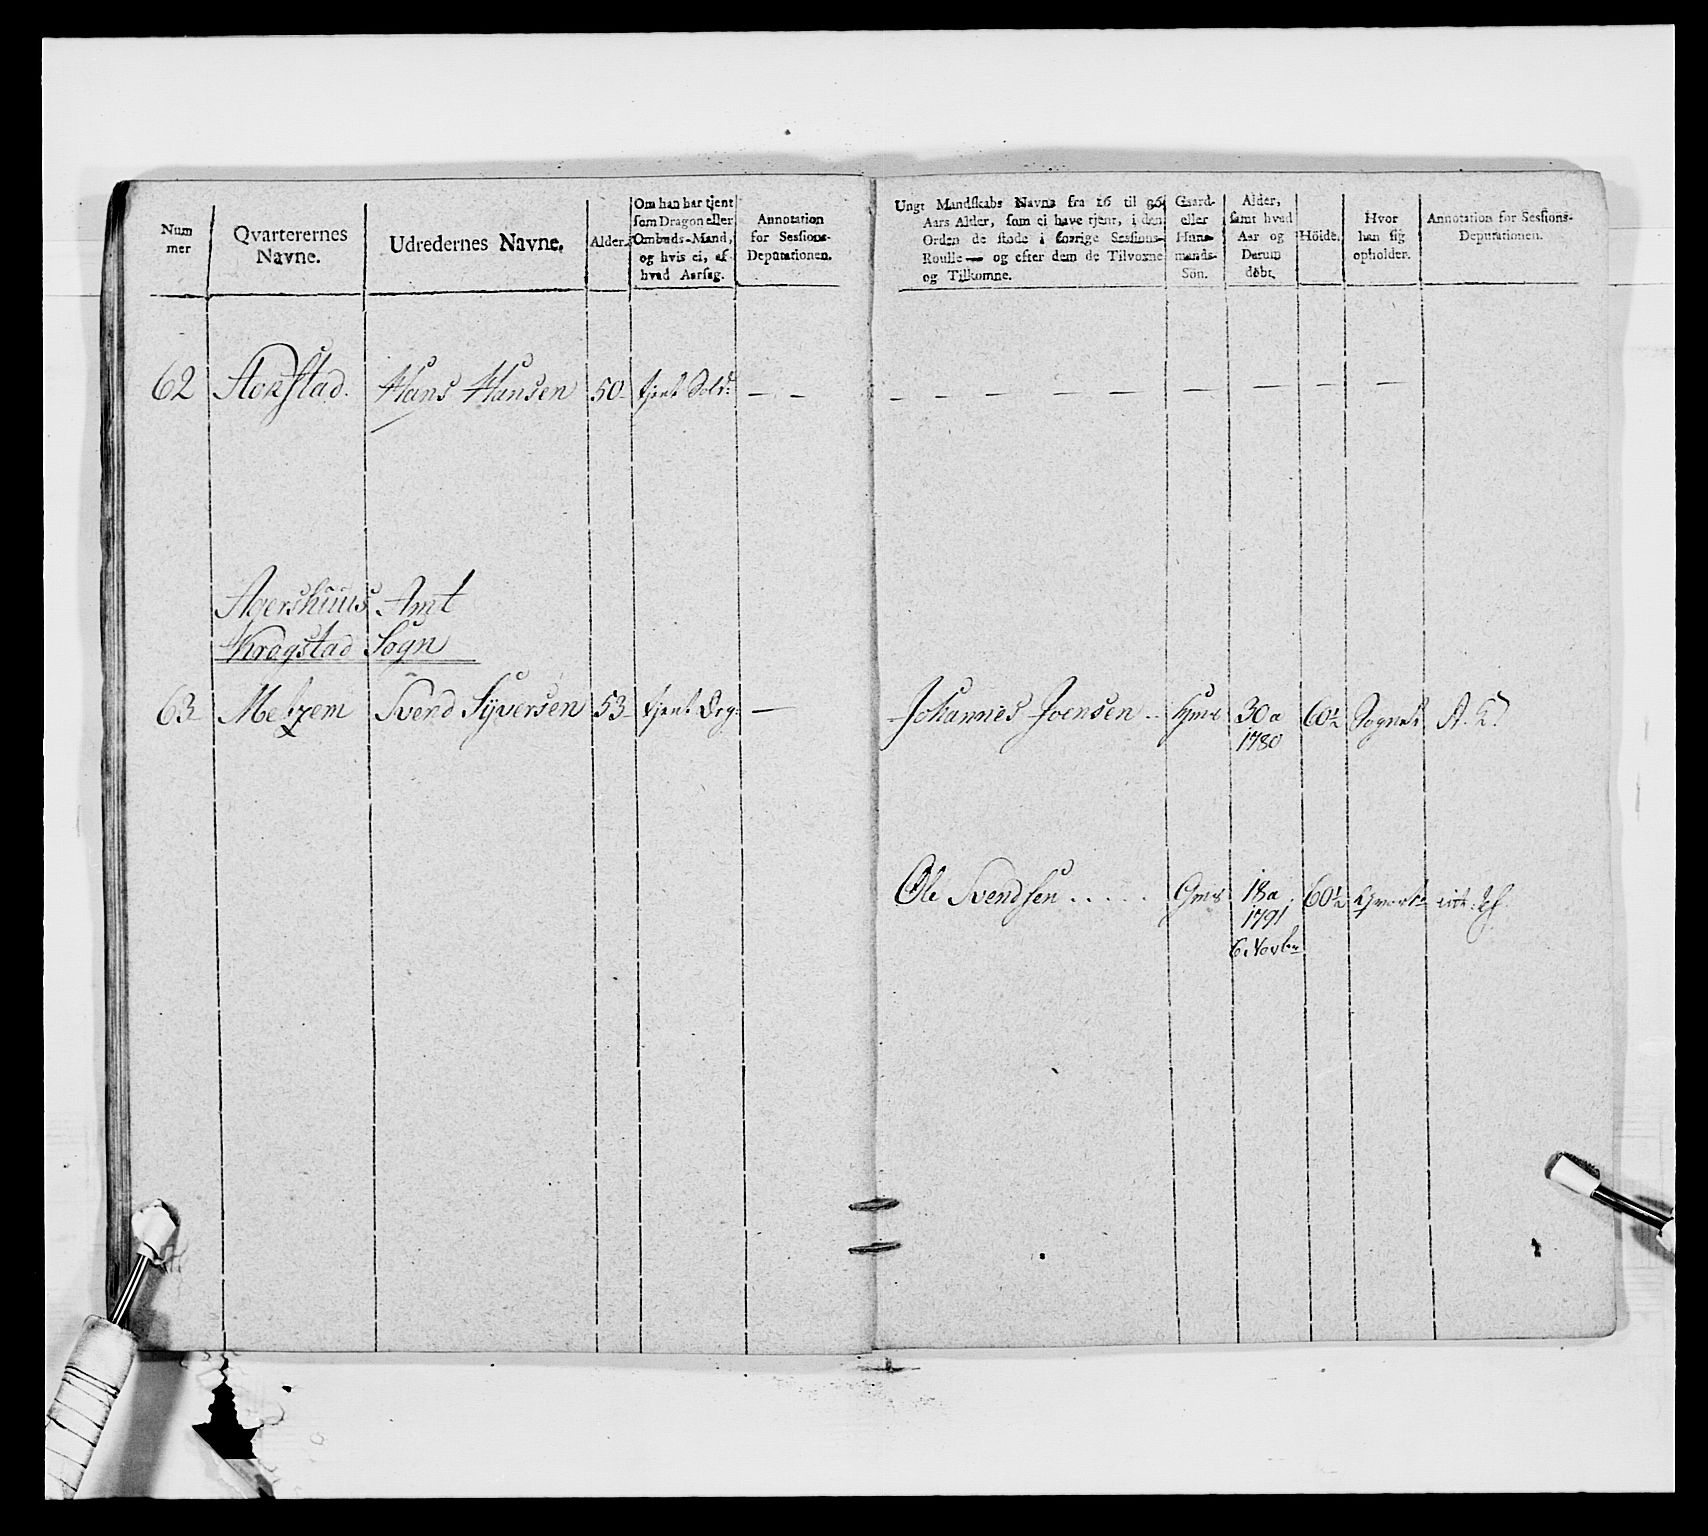 Num mer
Qvarterernes Navne.
Udredernes Navne.
Alder.
Om han har tjent
som Dragon eller
Ombuds-Mand,
og hvis ei, af
hvad Aarsag.
Annotation
for Sessions-
Deputationen.
Ungt Mandskabs Navne fra 16 til 36
Aars Alder, som ei have tjent, i den
Orden de stode i forrige Sessions-
Roulle — og efter dem de Tilvoxne
og Tilkomne.
Gaard-
eller
Huus-
mands-
Sön.
Alder,
samt hvad
Aar og
Datum
döbt.
Höide.
Hvor
han sig
opholder.
Annotation for Sessions-
Deputationen.
62 Hans Hansen 50 tjent Sold: — — — — — — — — — — —
Agershuus Amt
Kragstad Sogn
63 Svend Syversen 53 tjent Drg: — Johannes Joensen .. 30 a 60½ Sognet
1780
Ole Svendsen ..... Gms 18 a 60½
1791
6 Novbr